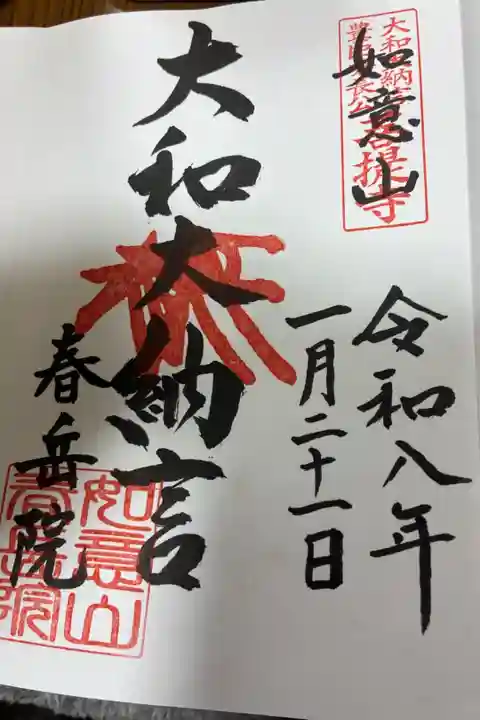 大和大納言
豊臣秀長公菩提寺
如意山
令和八年
一月二十一日
大和大納言
春岳院
如意山
春岳院